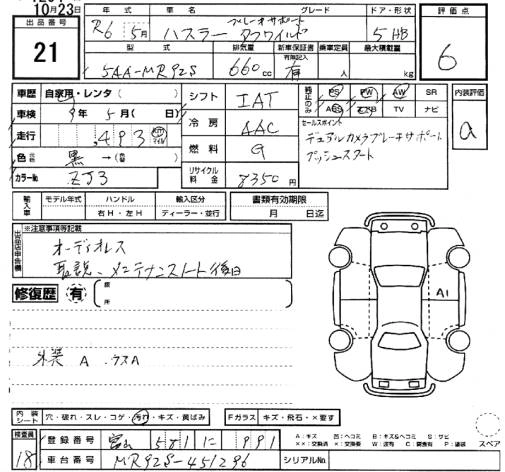 10月23日
出品番号
21
年式 車名 グレード ドア・形状
R6 5月 ハスラー ブレーキサポート
タフワイルド 5 HB
評価点
6
型式 排気量 新車保証書 有限記入 乗車定員 最大積載量
5AA-MR92S 660cc 有 人 kg
車歴 自家用・レンタ( )
車検 9年 5月( )
走行 ,493 km マイル
色 黒 →(色替
カラーNo ZJ3
シフト IAT
冷房 AAC
燃料 G
リサイクル料金 8350円
純正のみ PS PW AW SR
ABS エアB TV ナビ
セールスポイント
デュアルカメラブレーキサポート
プッシュスタート
内装評価
a
輸入車 モデル年式 ハンドル 輸入区分
年 右H・左H ディーラー・並行
書類有効期限
月 日迄
出品店申告欄
※注意事項等記載
オーディオレス
取説、メンテナンスノート後日
修復歴 有 箇所
A1
外装 A ウスA
内装シート 穴・破れ・スレ・コゲ・汚れ・キズ・黄ばみ
Fガラス キズ・飛石・×要す
検査員
18
登録番号 富山 581 に 991
車台番号 MR92S-451296
シリアルNo
A:キズ U:凹ヘコミ B:キズ&ヘコミ S:サビ
XX:交換済 X:交換要 W:波有 C:腐食有 P:塗装
スペア